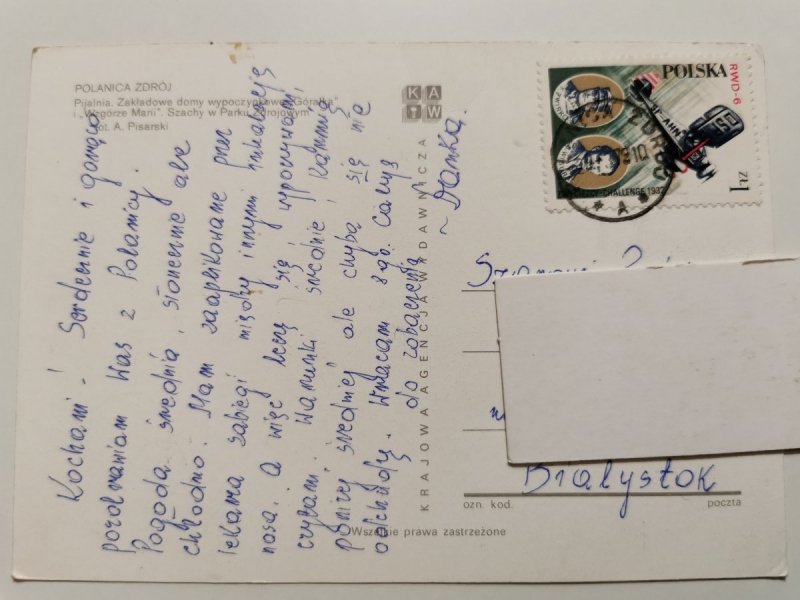 POLANICA ZDRÓJ
Pijalnia. Zakładowe domy wypoczynkowe „Góralka"
i „Wzgórze Marii". Szachy w Parku Zdrojowym
Fot. A. Pisarski
KAW
KRAJOWA AGENCJA WYDAWNICZA
Kochani! Serdecznie i gorąco
pozdrawiam Was z Polanicy.
Pogoda średnia, słonecznie ale
chłodno. Mam zaaplikowane przez
lekarza zabiegi między innymi inhalacje
nosa. A więc leczę się, wypoczywam,
czytam. Warunki średnie! Karmią
poniżej średniej ale chyba się nie
odchudzę. Wracam
do zobaczenia
~ Danka.
POLSKA
RWD-6
SP-AHN
CHALLENGE 1932
1 ZŁ
Białystok
ozn. kod.
poczta
Wszelkie prawa zastrzeżone